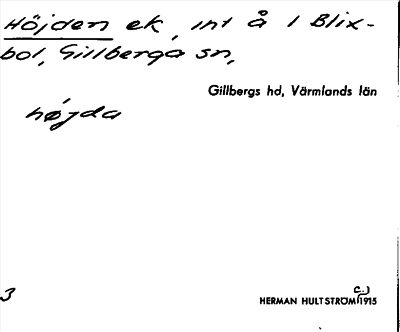 Höjden ek, int å 1 Blix-
bol, Gillberga sn,
Gillbergs hd, Värmlands län
højda
3
HERMAN HULTSTRÖM 1915